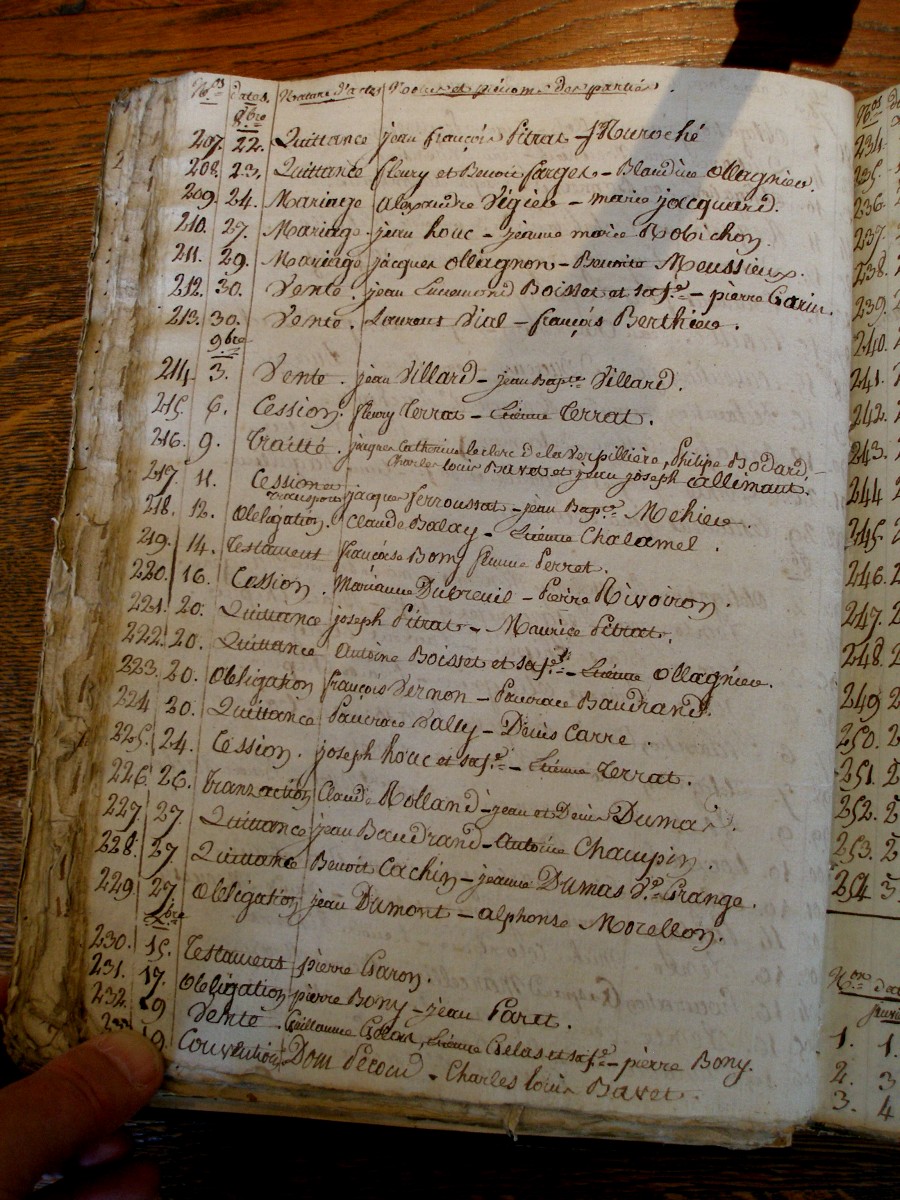 N.os dates. Nature d'actes Noms et prénoms des parties.
8bre
207. 22. Quittance jean françois Pitrat -
208. 23. Quittance fleury et Benoit farges - Blandine Ollagnier.
209. 24. Mariage alexandre Végier - marie jacquard.
210. 27. Mariage. jean houc - jeanne marie Robichon.
211. 29. Mariage jacques Ollagnon - Benoite Meussieux.
212. 30. Vente. jean Boisset et sa f.e - pierre Garin.
213. 30. Vente. Laurens Vial - françois Berthier.
9bre
214. 3. Vente. jean Villard - jean Bap.te Villard.
215. 6. Cession. fleury Terrat - Etienne Terrat.
216. 9. Traitté. jacques Catherine leclerc de la Verpillière, Philipe Bodard,
Charles louis Bavet et jean joseph Callimant.
217. 11. Cession et
transport jacques ferroussat - jean Bap.te Mehier.
218. 12. Obligation. Claude Balay - Etienne Chalamel.
219. 14. Testament françoise Bony femme Perret.
220. 16. Cession. Marianne Dutreuil - Pierre Rivoiron.
221. 20. Quittance joseph Pitrat - Maurice Pitrat.
222. 20. Quittance Antoine Boisset et sa f.e - Etienne Ollagnier.
223. 20. Obligation françois Vernon - Pancrace Baudrand.
224 20. Quittance Pancrace Valsy - Denis Carre.
225. 24. Cession. joseph houc et sa f.e - Etienne Terrat.
226. 26. Tranzaction Claude Rolland - jean et Denis Dumas.
227. 27 Quittance jean Baudrand - Antoine Champin.
228. 27 Quittance Benoit Cachin - jeanne Dumas V.e Grange.
229. 27 Obligation jean Dumont - alphonse Morellon.
Xbre
230. 15. Testament pierre Garon.
231. 17. Obligation pierre Bony - jean Paret.
232. 19 Vente. Guillaume Gelas, Etienne Gelas et sa f.e - pierre Bony.
19 Convention Dom Pécoud - Charles louis Bavet.
N.os
234.
235.
236.
237.
238.
239.
240.
241.
242.
243.
244
245.
246.
247.
248.
249
250.
251.
252.
253.
254 3
N.os
1. 1.
2. 3
3. 4